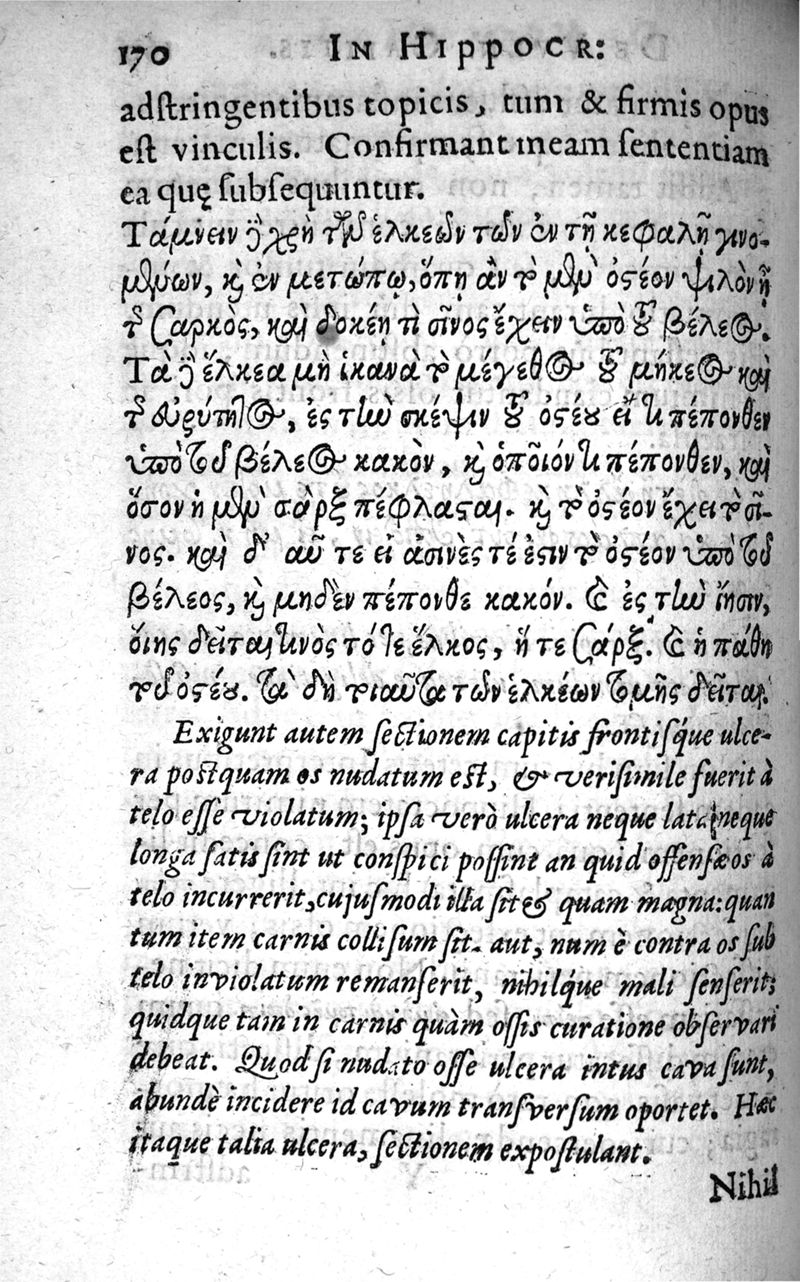 170 IN HIPPOCR:
adstringentibus topicis, tum & firmis opus
est vinculis. Confirmant meam sententiam
ea quę subsequuntur.
Τάμνειν ἢ χρὴ τῶν ἑλκεων τῶν ἐν τῇ κεφαλῇ γινο-
μένων, κὶ ἐν μετώπῳ, ὅπη ἀν τὸ μὲν ὀστέον ψιλὸν ᾖ
τῆς σαρκὸς, καὶ δοκέῃ τὶ σῖνος ἔχειν ὑπὸ τοῦ βέλεος.
Τὰ δὲ ἕλκεα μὴ ἱκανὰ τὸ μέγεθος τοῦ μήκεος καὶ
τῆς εὐρύτητος, ἐς τὴν σκέψιν τοῦ ὀστέου εἴ τι πέπονθεν
ὑπὸ τοῦ βέλεος κακὸν, κὶ ὁποῖόν τι πέπονθεν, καὶ
ὅσον ἡ μὲν σὰρξ πέφλασται. κὶ τὸ ὀστέον ἔχει τὸ σῖ-
νος. καὶ δ' αὖ τε εἰ ἀσινὲς τέ ἐστιν τὸ ὀστέον ὑπὸ τοῦ
βέλεος, κὶ μηδὲν πέπονθε κακόν. καὶ ἐς τὴν ἴησιν,
ὁίης δεῖται τινὸς τό τε ἕλκος, ἥ τε σάρξ. καὶ ἡ πάθη
τοῦ ὀστέου. τὰ δὴ τοιαῦτα τῶν ἑλκέων τομῆς δεῖται.
Exigunt autem sectionem capitis frontisq́ue ulce-
ra postquam os nudatum est, & verisimile fuerit à
telo esse violatum; ipsa verò ulcera neque lata neque
longa satis sint ut conspici possint an quid offensæ os à
telo incurrerit, cujusmodi illa sit & quam magna: quan
tum item carnis collisum sit. aut, num è contra os sub
telo inviolatum remanserit, nihilq́ue mali senserit;
quidque tam in carnis quàm ossis curatione observari
debeat. Quod si nudato osse ulcera intus cava sunt,
abundè incidere id cavum transversum oportet. Hæc
itaque talia ulcera, sectionem expostulant.
Nihil